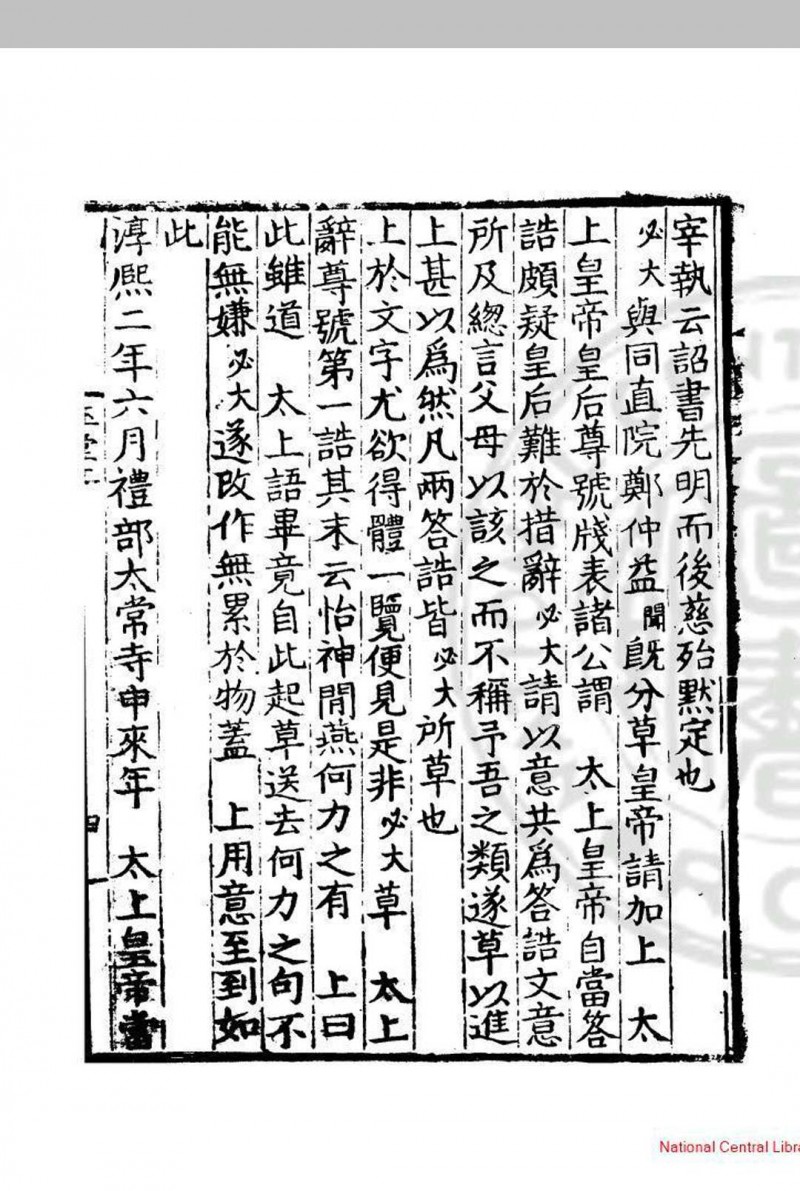 宰執云詔書先明而後慈殆默定也
必大與同直院鄭仲益聞既分草皇帝請加上 太
上皇帝皇后尊號牋表諸公謂 太上皇帝自當答
誥頗疑皇后難於措辭必大請以意共爲答誥文意
所及緫言父母以該之而不稱予吾之類遂草以進
上甚以爲然凡兩答誥皆必大所草也
上於文字尤欲得體一覽便見是非必大草 太上
辭尊號第一誥其末云怡神閒燕何力之有 上曰
此雖道 太上語畢竟自此起草送去何力之句不
能無嫌必大遂改作無累於物蓋 上用意至到如
此
淳熙二年六月禮部太常寺申來年 太上皇帝當
National Central Libra